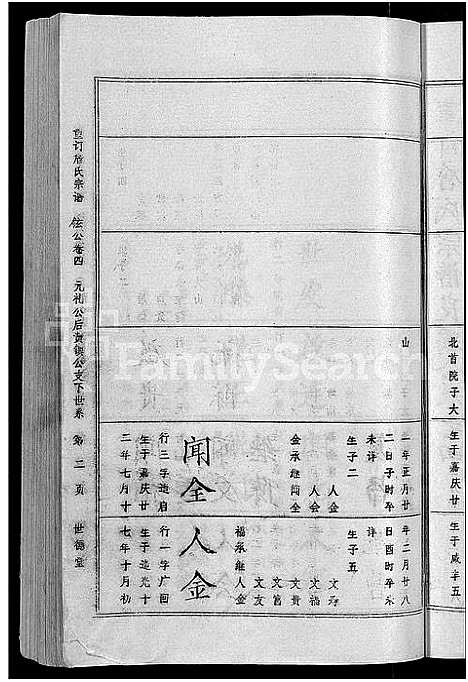 北首院子大
生于嘉庆廿
生于咸丰五
山
一年五月廿
二日子时卒
未详
生子二
人金
人会
金承继闻全
闻全
行三字逸启
生于嘉庆廿
二年七月十
年二月廿八
日酉时卒未
详
生子五
文寿
文福
文贵
文富
文友
福承继人金
人金
行一字广画
生于道光十
七年十月初
重订詹氏宗谱
弦公卷四
元礼公后黄镇公支下世系
第二页
世德堂
FamilySearch